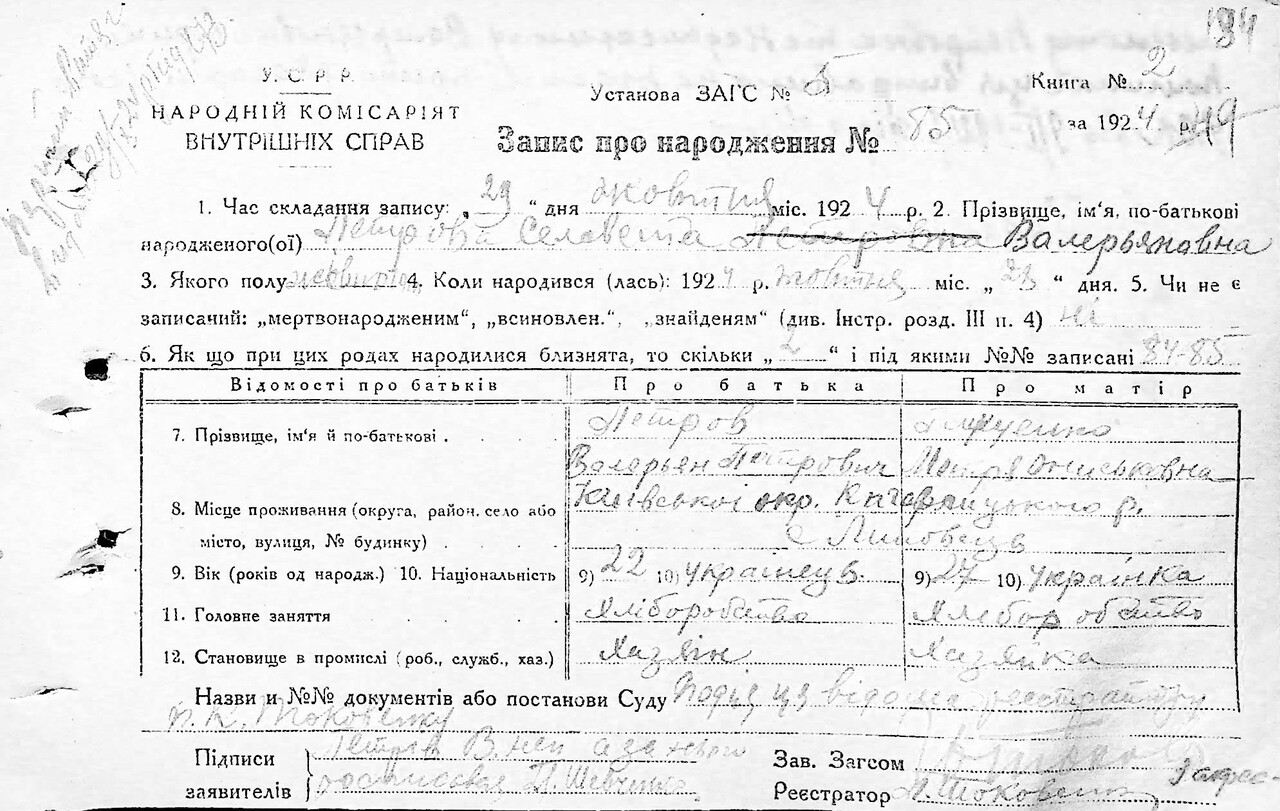 194
У.С.Р.Р.
НАРОДНІЙ КОМІСАРІЯТ
ВНУТРІШНІХ СПРАВ
Установа ЗАГС № 5
Книга № 2
Запис про народження № 85 за 1924 р. 49
1. Час складання запису: „29“ дня жовтня міс. 1924 р. 2. Прізвище, ім'я, по-батькові
народженого(ої) Петрова Селовета Петровна Валерьяновна
3. Якого полу жіночого 4. Коли народився (лась): 1924 р. жовтня міс. „23“ дня. 5. Чи не є
записачий: „мертвонародженим“, „всиновлен.“, „знайденям“ (див. Інстр. розд. III п. 4) ні
6. Як що при цих родах народилися близнята, то скільки „2“ і під якими №№ записані 84-85
Відомості про батьків Про батька Про матір
7. Прізвище, ім'я й по-батькові . Петров
Валерьян Петрович Ониськовна
8. Місце проживання (округа, район, село або Київської окр. Кагарлицького р.
місто, вулиця, № будинку) с Липовець
9. Вік (років од народж.) 10. Національність 9) 22 10) українець 9) 27 10) українка
11. Головне заняття Хліборобство Хліборобство
12. Становище в промислі (роб., служб., хаз.) Хазяїн Хазяйка
Назви и №№ документів або постанови Суду Подія ця відома реєстратору
Т. К. Токовенку
Підписи
заявителів
Петрів В. Шевченко
Зав. Загсом
Реєстратор